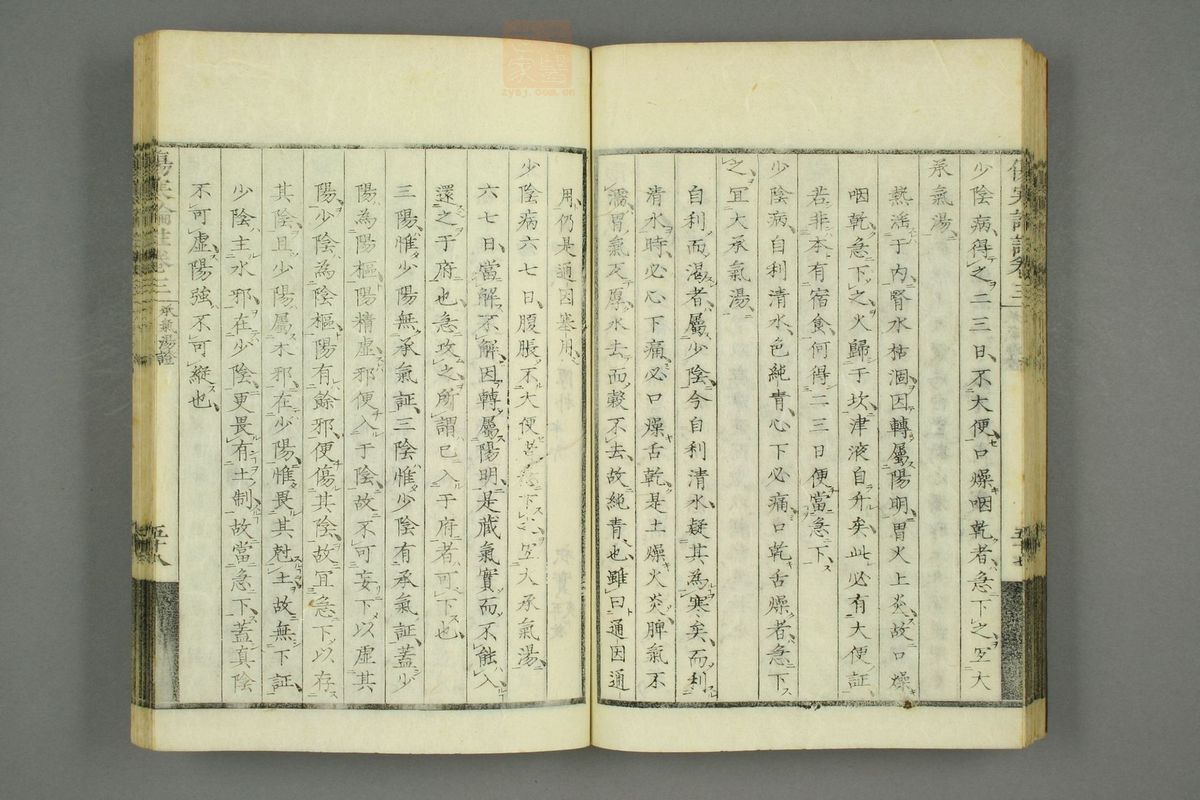 少陰病得之二三日不大便口燥咽乾者急下之宜大
承氣湯
熱淫于內腎水枯涸因轉屬陽明胃火上炎故口燥
咽乾急下之火歸于坎津液自升矣此必有大便証
若非本有宿食何得二三日便當急下
少陰病自利清水色純青心下必痛口乾舌燥者急下
之宜大承氣湯
自利而渴者屬少陰今自利清水疑其為寒矣而利
清水時必心下痛必口燥舌乾是土燥火炎脾氣不
濡胃氣反厚水去而穀不去故純青也雖曰通因通
用仍是通因塞用
少陰病六七日腹脹不大便者急下之宜大承氣湯
六七日當解不解因轉屬陽明是藏氣實而不能入
還之于府也急攻之所謂已入于府者可下也
三陽惟少陽無承氣証三陰惟少陰有承氣証蓋少
陽為陽樞陽精虛邪便入于陰故不可妄下以虛其
陽少陰為陰樞陽有餘邪便傷其陰故宜急下以存
其陰且少陽屬木邪在少陽惟畏其尅土故無下証
少陰主水邪在少陰更畏有土制故當急下蓋真陰
不可虛陽強不可縱也
傷寒論註卷三
承氣湯證
五十八
醫家
zysj.com.cn